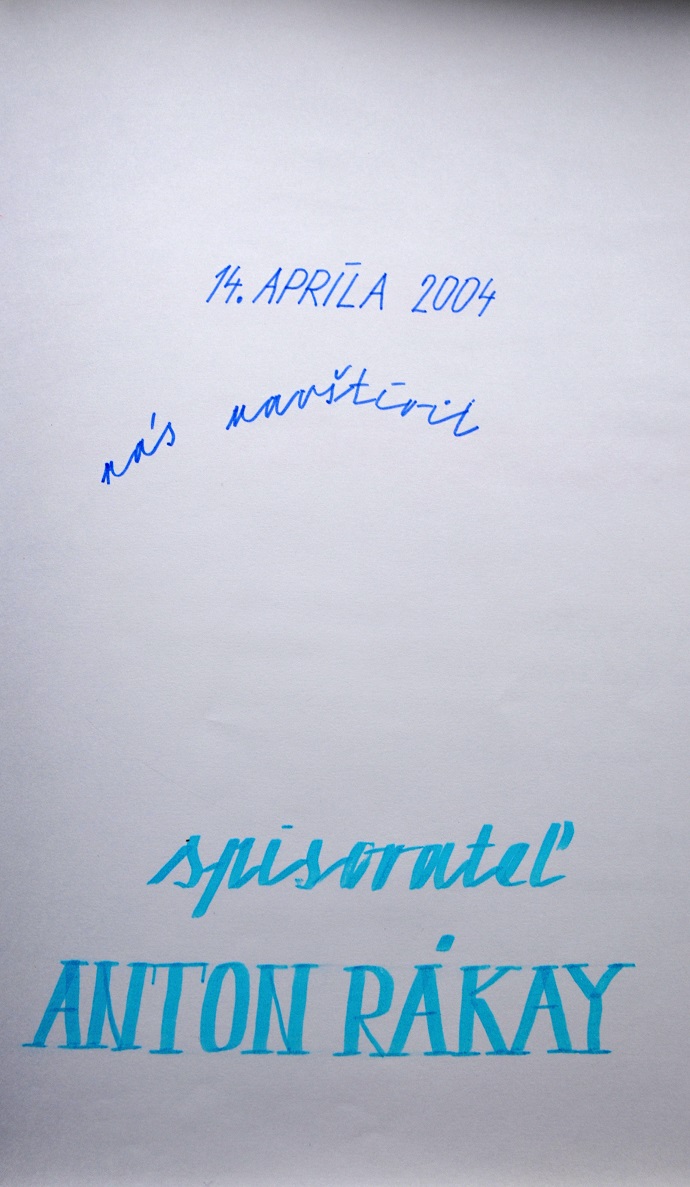 14. APRÍLA 2004
nás navštívil
spisovateľ
ANTON RÁKAY